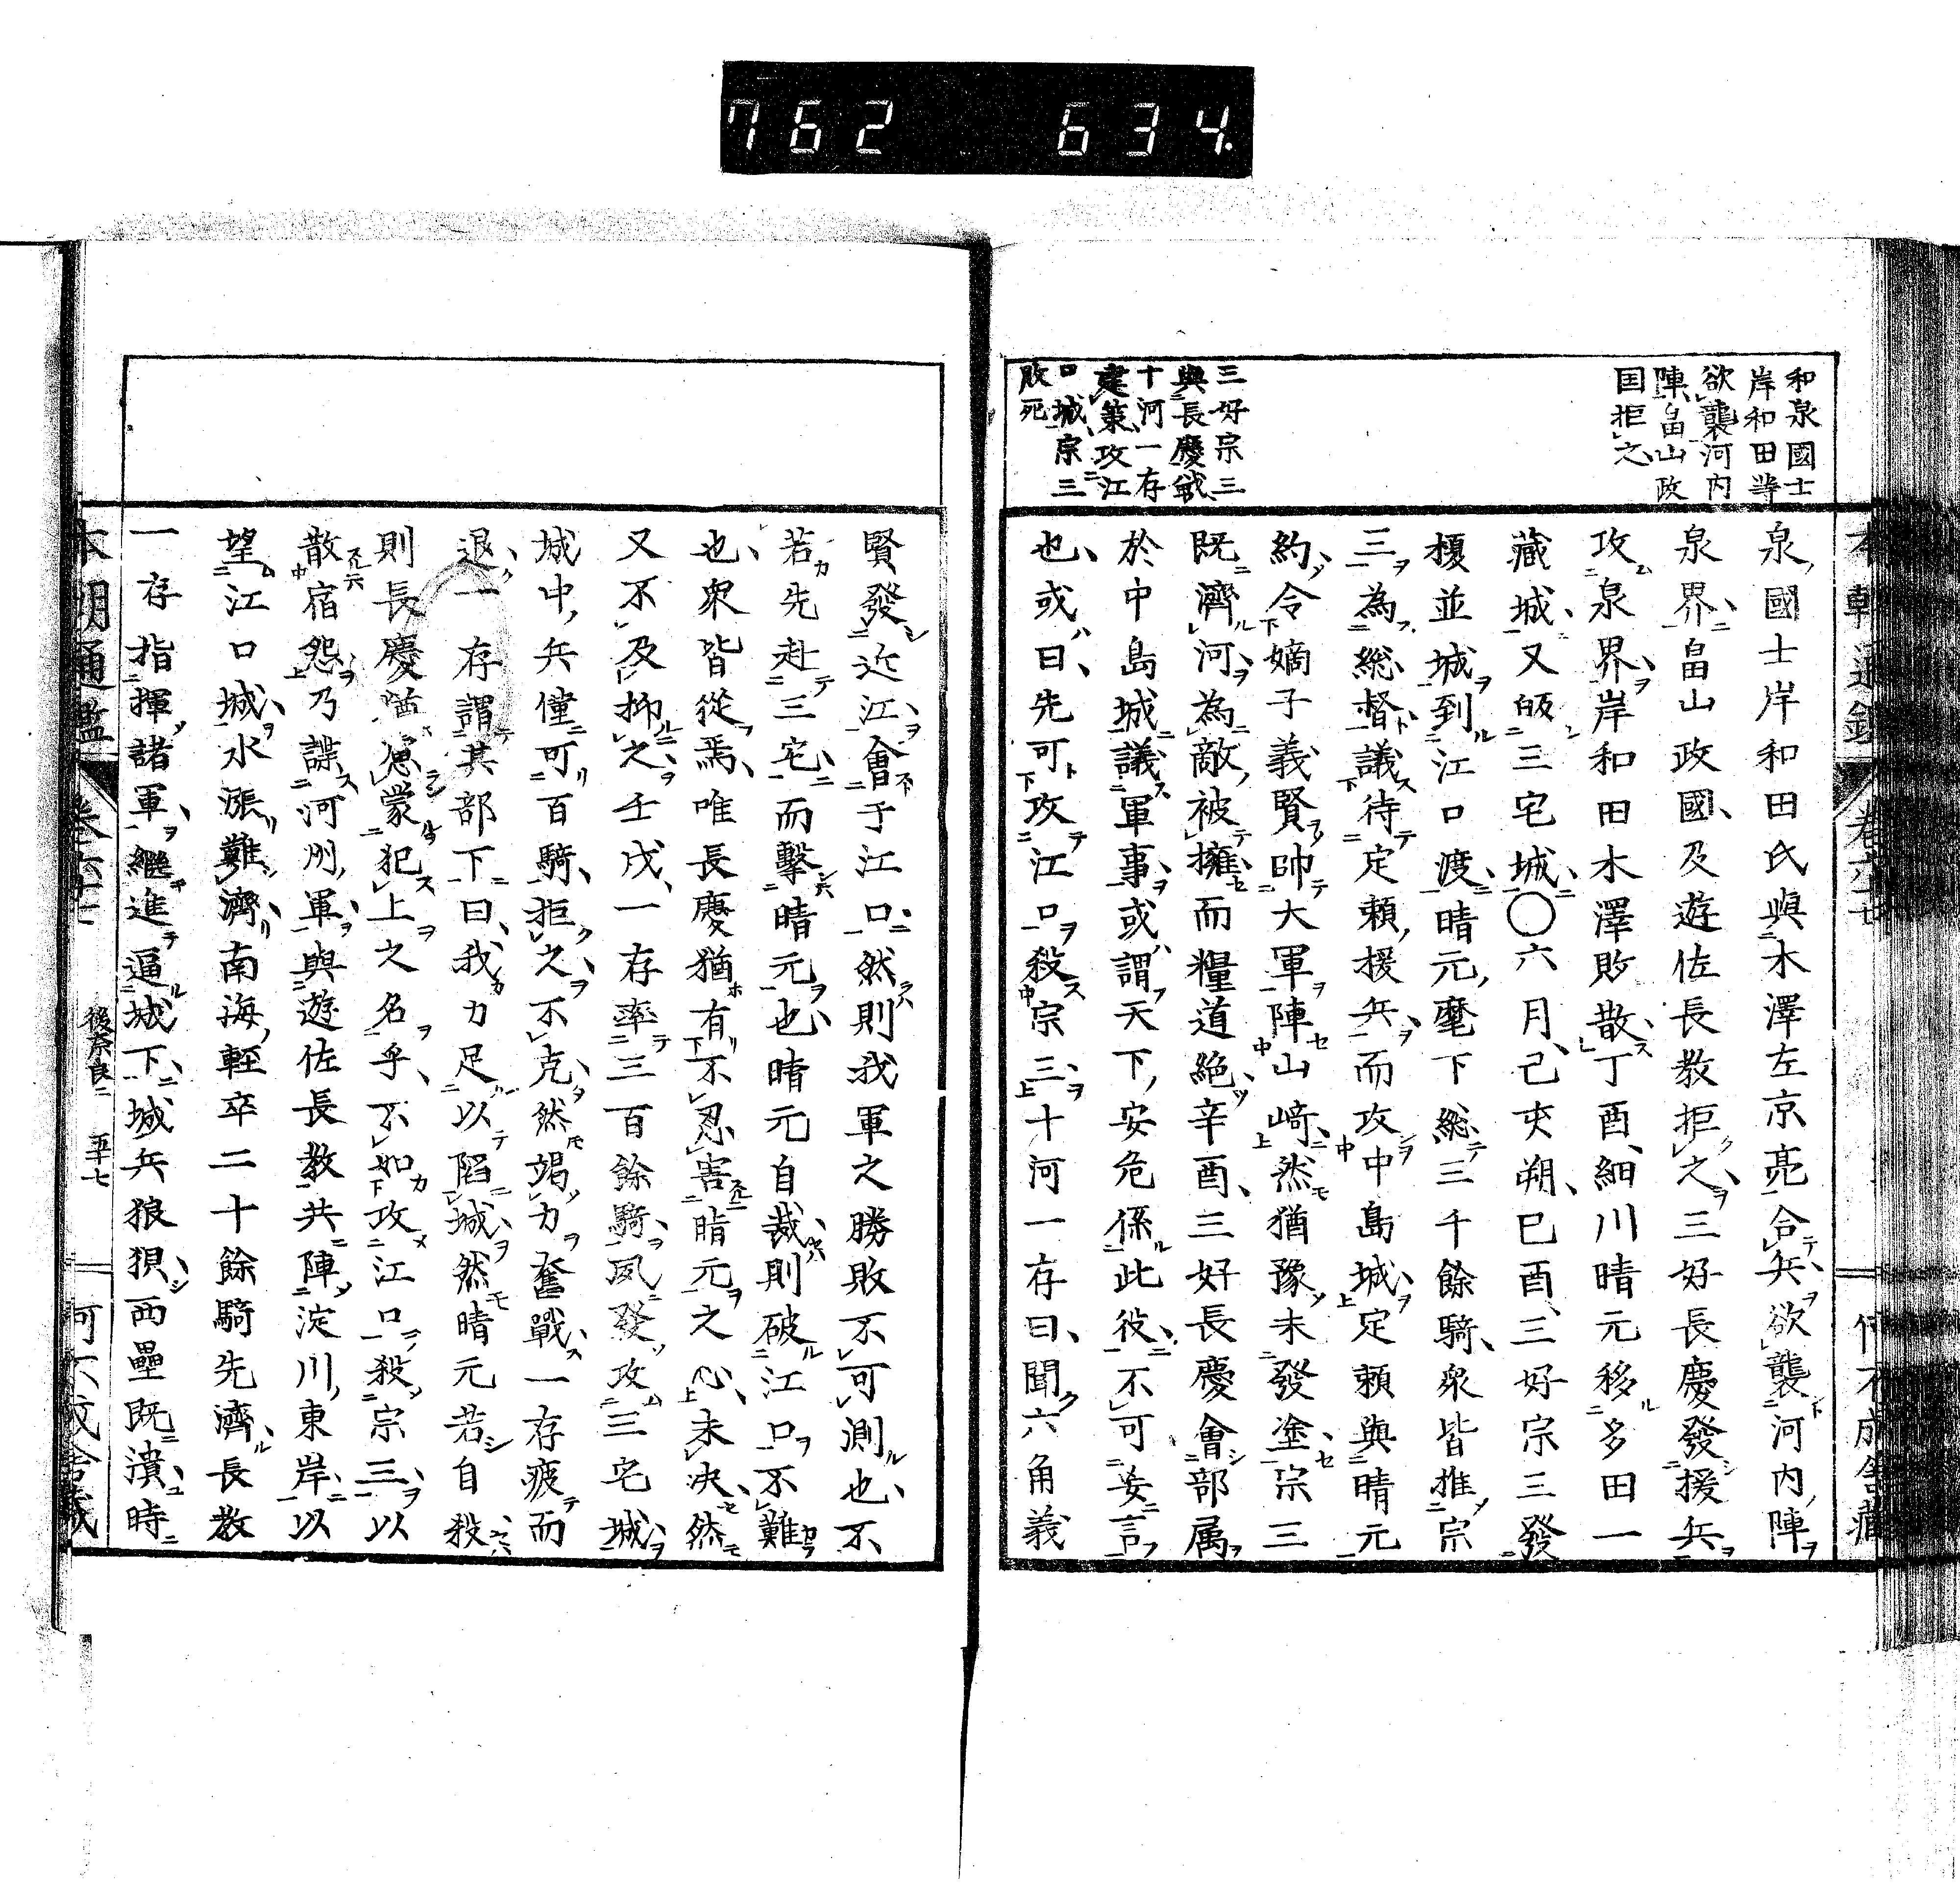 762 634
和泉國士
岸和田等
欲襲河内
陣畠山政
国拒之
三好宗三
與長慶戦
十河一存
建策攻江
口城宗三
敗死
泉國士岸和田氏與木澤左京亮合兵欲襲河内陣
泉界畠山政國及遊佐長教拒之三好長慶發援兵
攻泉界岸和田木澤敗散丁酉細川晴元移多田一
藏城又皈三宅城〇六月己夾朔巳酉三好宗三發
榎並城到江口渡晴元麾下総三千餘騎衆皆推宗
三為総督議待定頼援兵而攻中島城定頼與晴元
約令嫡子義賢帥大軍陣山﨑然猶豫未發塗宗三
既濟河為敵被擁而糧道絶辛酉三好長慶會部属
於中島城議軍事或謂天下安危係此役不可妄言
也或曰先可攻江口殺宗三十河一存曰聞六角義
賢發近江會于江口然則我軍之勝敗不可測也不
若先赴三宅而擊晴元也晴元自裁則破江口不難
也衆皆從焉唯長慶猶有不忍害晴元之心未决然
又不及抑之壬戌一存率三百餘騎夙發攻三宅城
城中兵僅可百騎拒之不克然竭力奮戰一存疲而
退一存謂其部下曰我力足以陷城然晴元若自殺
則長慶蒙犯上之名乎不如攻江口殺宗三以
散宿怨乃諜河州軍與遊佐長教共陣淀川東岸以
望江口城水漲難濟南海輕卒二十餘騎先濟長教
一存指揮諸軍繼進逼城下城兵狼狽西壘既潰時
本朝通鑑 後奈良二 五十七